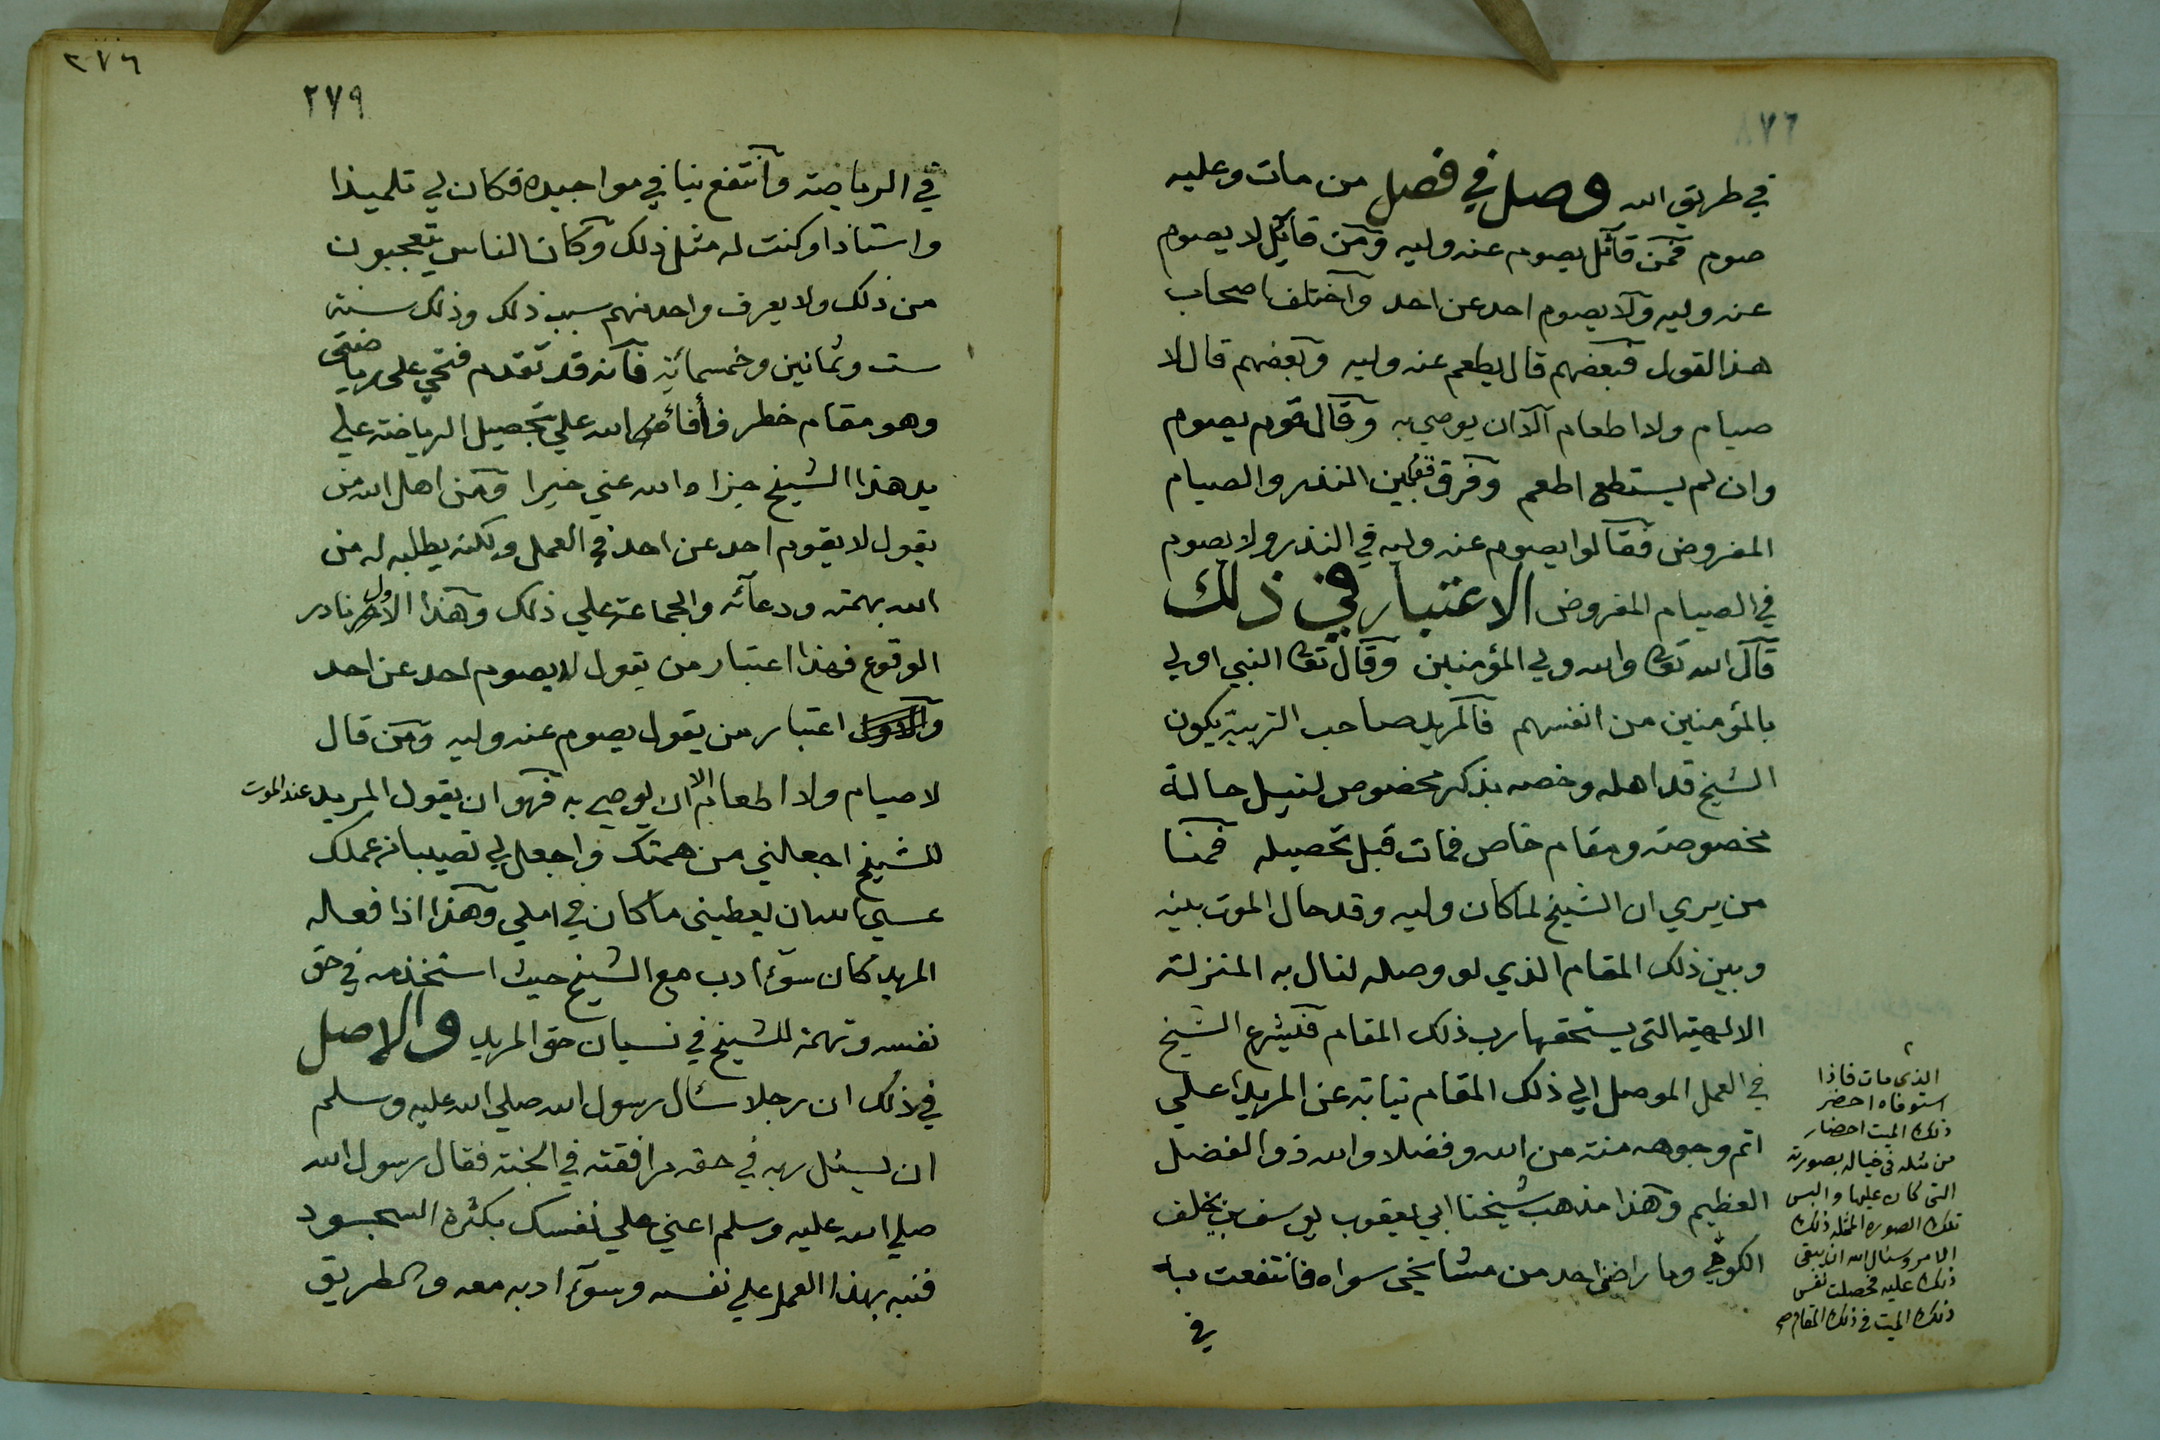 في طريق الله وصل في فصل من مات وعليه
صوم فمن قائل يصوم عنه وليه ومن قائل لا يصوم
عنه وليه ولا يصوم احد عن احد واختلف اصحاب
هذا القول فبعضهم قال يطعم عنه وليه وبعضهم قال لا
صيام ولا اطعام الا ان يوصي به وقال قوم يصوم
وان لم يستطع اطعم وفرق قوم بين النذر والصيام
المفروض فقالوا يصوم عنه وليه في النذر ولا يصوم
في الصيام المفروض الاعتبار في ذلك
قال الله تعالى والله ولي المؤمنين وقال تعالى النبي اولى
بالمؤمنين من انفسهم فالمريد صاحب التربية يكون
الشيخ قد اهله وخصه بذكر مخصوص لنيل حالة
مخصوصة ومقام خاص فمات قبل تحصيله فمنا
من يري ان الشيخ لما كان وليه وقد حال الموت بينه
وبين ذلك المقام الذي لو وصله لنال به المنزلة
الالهية التي يستحقها رب ذلك المقام فيشرع الشيخ
في العمل الموصل الي ذلك المقام نيابة عن المريد علي
اتم وجوهه منة من الله وفضلا والله ذو الفضل
العظيم وهذا مذهب شيخنا ابي يعقوب يوسف بن يخلف
الكومي وما راضني احد من مشايخي سواه فانتفعت به
في
الذي مات فاذا
استوفاه احضر
ذلك الميت احضار
من مثله في خياله بصورته
التي كان عليها والبس
تلك الصورة الممثلة ذلك
الامر وسئال الله ان يبقي
ذلك عليه فحصلت نفس
ذلك الميت في ذلك المقام صح
٢٧٦
٢٧٩
في الرياضة وانتفع بنا في مواجيده فكان لي تلميذا
واستاذا وكنت له مثل ذلك وكان الناس يتعجبون
من ذلك ولا يعرف واحد منهم سبب ذلك وذلك سنة
ست وثمانين وخمسمائة فانه قد تقدم فتحي على رياضتي
وهو مقام خطر فأفاض الله علي تحصيل الرياضة علي
يد هذا الشيخ جزاه الله عني خيرا ومن اهل الله من
يقول لا يقوم احد عن احد في العمل ولكنه يطلبه له من
الله بهمته ودعائه والجماعة علي ذلك وهذا الاول نادر
الوقوع فهذا اعتبار من يقول لا يصوم احد عن احد
والاول اعتبار من يقول يصوم عنه وليه ومن قال
لا صيام ولا اطعام الا ان يوصي به فهو ان يقول المريد عند الموت
للشيخ اجعلني من همتك واجعل لي نصيبا من عملك
عسي الله ان يعطيني ما كان في املي وهذا اذا فعله
المريد كان سوء ادب مع الشيخ حيث استخدمه في حق
نفسه وتهمة للشيخ في نسيان حق المريد والاصل
في ذلك ان رجلا سئال رسول الله صلي الله عليه وسلم
ان يسئل ربه في حقه مرافقته في الجنة فقال رسول الله
صلي الله عليه وسلم اعني علي نفسك بكثرة السجود
فنبه بهذا العمل علي نفسه وسوء ادبه معه والطريق